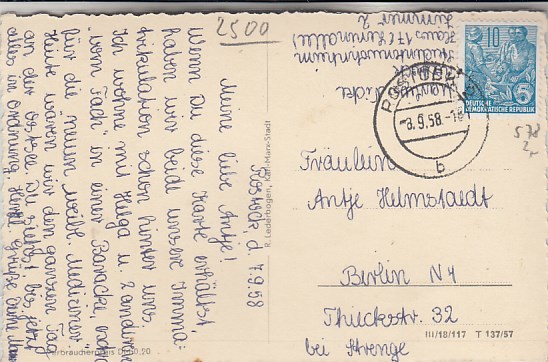 2500
Rostock, d. 7.9.58
Meine liebe Antje!
Wenn Du diese Karte erhältst,
haben wir beide unsere Imma-
trikulation schon hinter uns.
Ich wohne mit Helga u. 2 anderen
"vom Fach" in einer Baracke, extra
für die "neuen" weibl. Mediziner.
Heute waren wir den ganzen Tag
an der Ostsee. Du siehst bis jetzt
alles in Ordnung. Herzl. Grüße
Studentenwohnheim
Haus 17
Zimmer 2
10
5
DEUTSCHE
DEMOKRATISCHE REPUBLIK
ROSTOCK
-8.9.58-18
b
578
2,-
Fräulein
Antje Helmstaedt
Berlin N4
Thieckstr. 32
bei Strenge
R. Lederbogen, Karl-Marx-Stadt
Verbraucherpreis DM 0,20
III/18/117 T 137/57